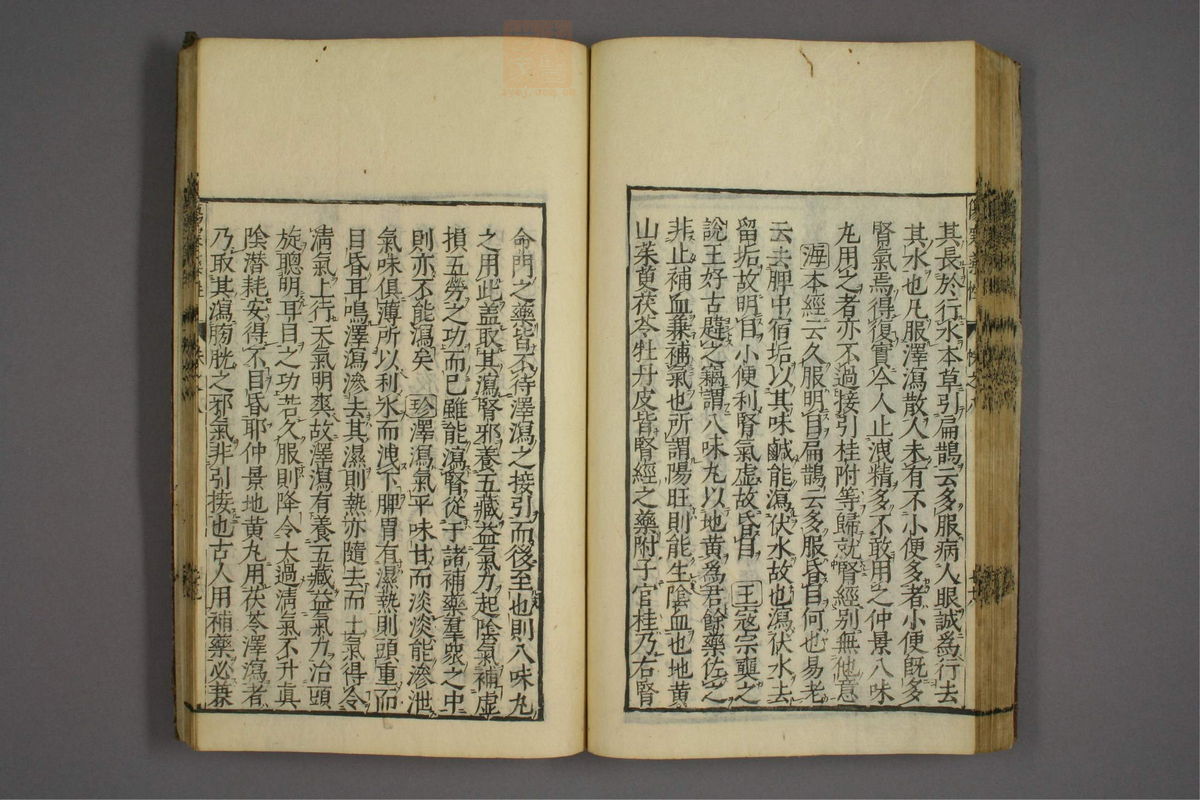 其長於行水本草引扁鵲云多服病人眼誠爲行去
其水也凡服澤瀉散人未有不小便多者小便既多
腎氣焉得復實今人止洩精多不敢用之仲景八味
丸用之者亦不過接引桂附等歸就腎經别無他意
海本經云久服明目扁鵲云多服昏目何也易老
云去脾中宿垢以其味鹹能瀉伏水故也瀉伏水去
留垢故明目小便利腎氣虚故昏目 王寇宗奭之
說王好古韙之竊謂八味丸以地黄爲君餘藥佐之
非止補血兼補氣也所謂陽旺則能生陰血也地黄
山茱萸茯苓牡丹皮皆腎經之藥附子官桂乃右腎
命門之藥皆不待澤瀉之接引而後至也則八味丸
之用此盖取其瀉腎邪養五藏益氣力起陰氣補虚
損五勞之功而已雖能瀉腎從于諸補藥羣衆之中
則亦不能瀉矣 珍澤瀉氣平味甘而淡淡能滲泄
氣味俱薄所以利水而洩下脾胃有濕熱則頭重而
目昏耳鳴澤瀉滲去其濕則熱亦隨去而土氣得令
清氣上行天氣明爽故澤瀉有養五藏益氣力治頭
旋聰明耳目之功若久服則降令太過清氣不升真
陰潜耗安得不目昏耶仲景地黄丸用茯苓澤瀉者
乃取其瀉膀胱之邪氣非引接也古人用補藥必兼